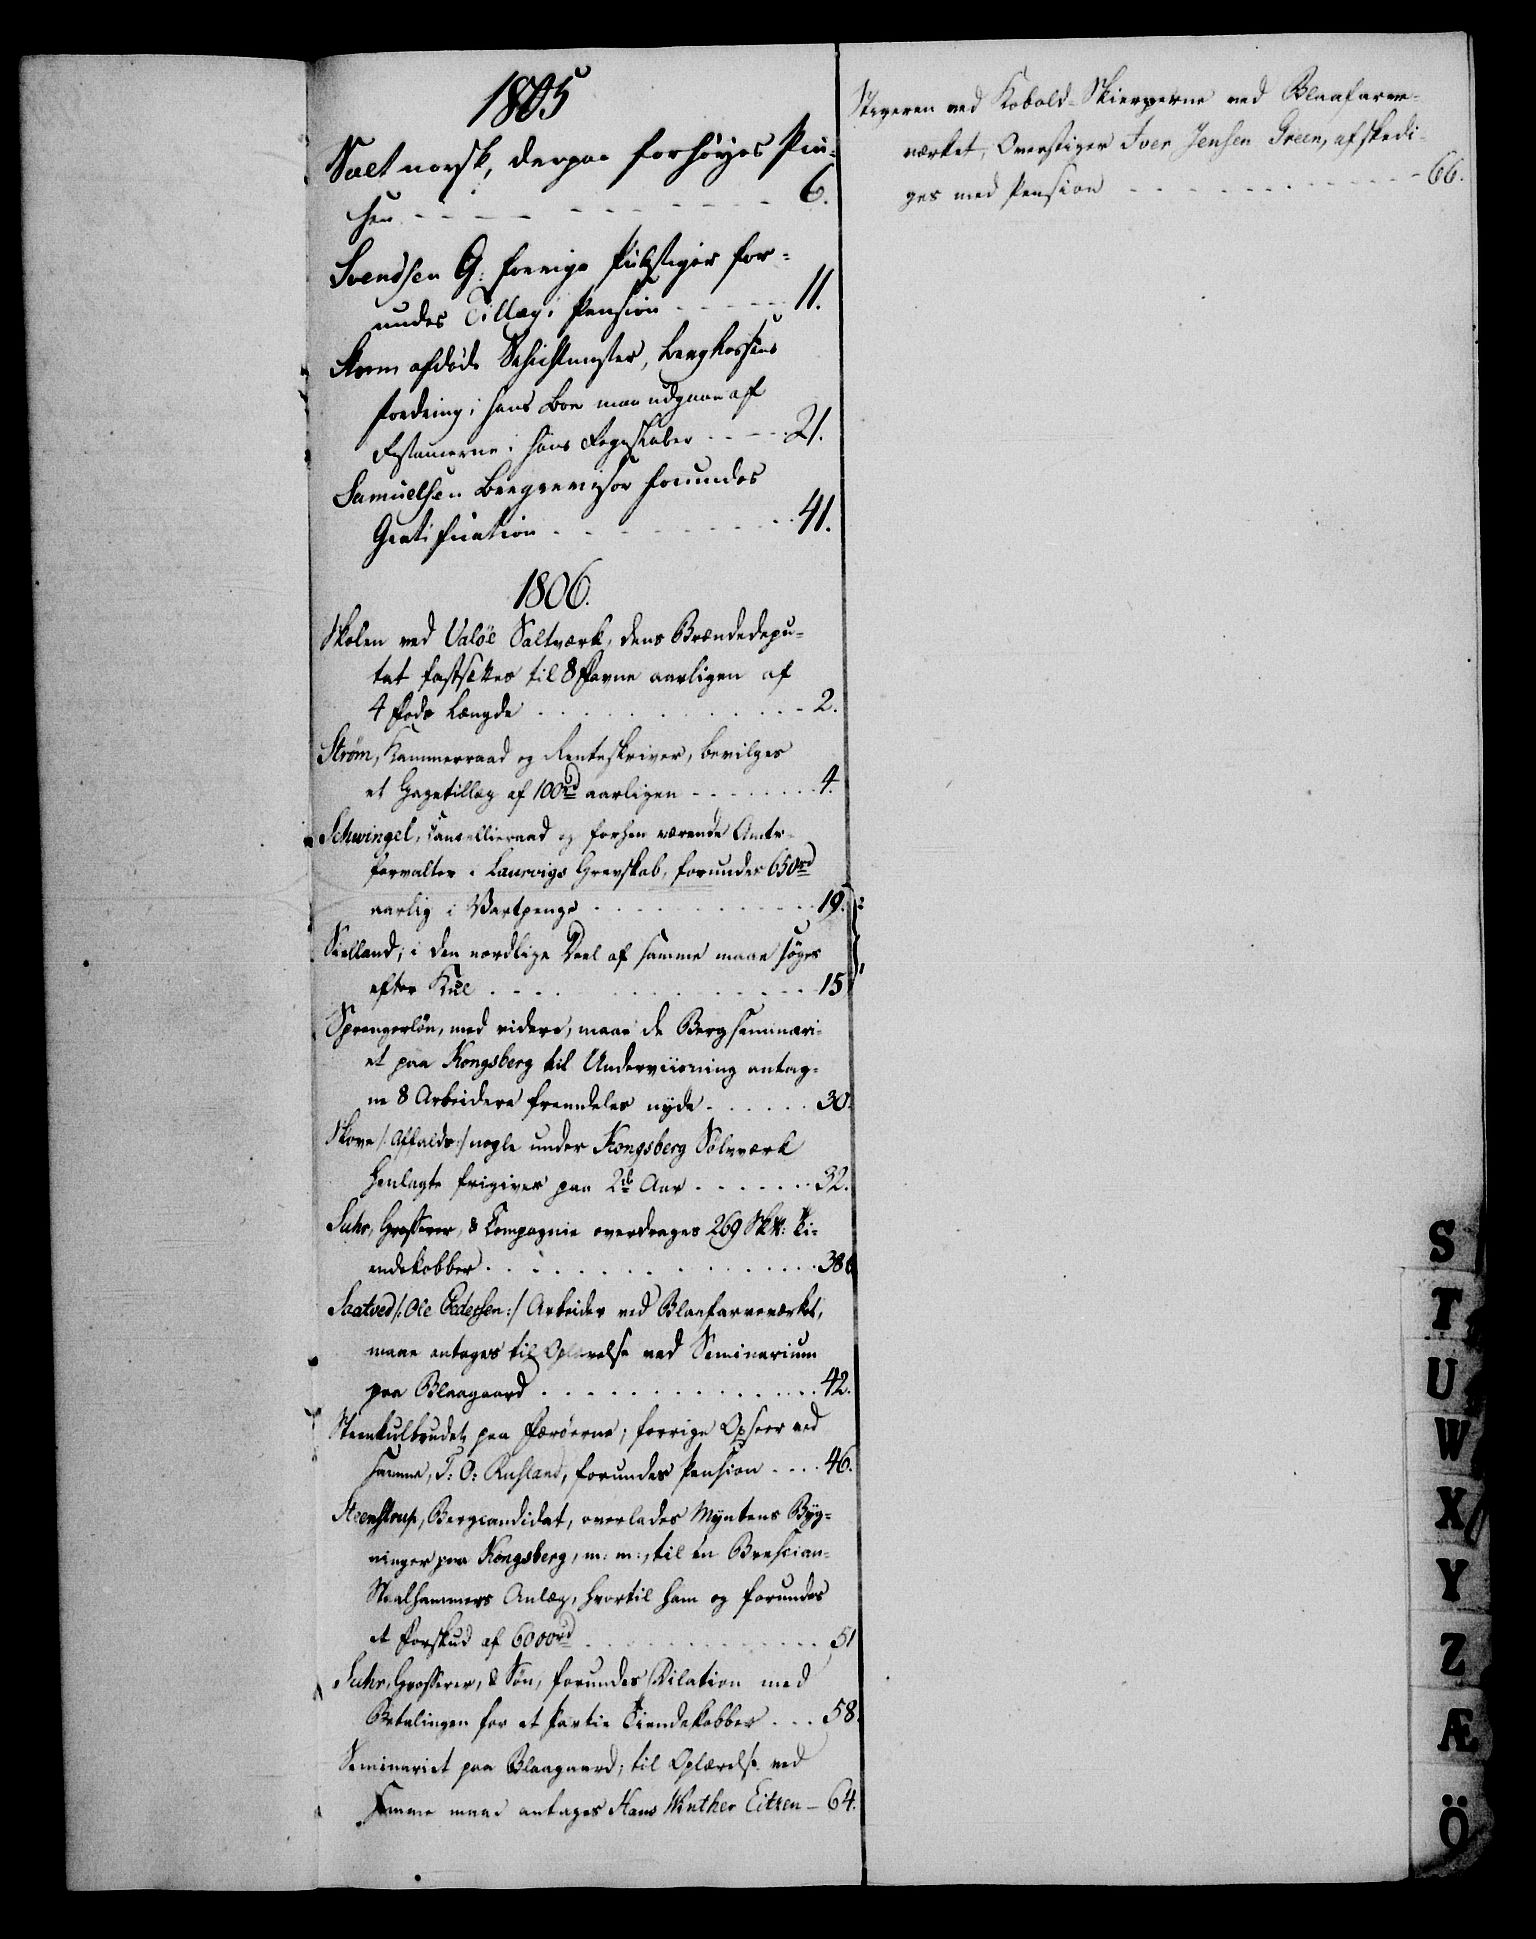 1805
Salt norsk, derpaa forhøyes Pri-
sen 6.
Svendsen G: forrige Pukstiger for-
undes Tillæg i Pension 11.
Storm afdøde Schichtmester, Bergkassens
Fordring i hans Boe maa udgaae af
Restancerne i hans Regnskaber 21.
Samuelsen Bergrevisor forundes
Gratification 41.
1806.
Skolen ved Valöe Saltværk, dens Brændedepu-
tat fastsættes til 8 Favne aarligen af
4 Fods Længde 2.
Strøm, Kammerraad og Renteskriver, bevilges
et Gagetillæg af 100 rd aarligen 4.
Schwingel, Cancellieraad og forhen værende Amts-
forvalter i Laurvigs Grevskab, forundes 650 rd
aarlig i Vartpenge 19.
Siælland, i den nordlige Deel af samme maae søges
efter Kul 15
Sprengerlön, med videre, maae de Bergseminari-
et paa Kongsberg til Underviisning antag-
ne 8 Arbeidere fremdeles nyde 30.
Skove /: Affalds :/ nogle under Kongsberg Sølvværk
henlagte frigives paa 2de Aar 32.
Suhr, Grosserer, & Compagnie overdrages 269 Sk℔: Ti-
endekobber 38.
Saatved /: Ole Pedersen :/ Arbeider ved Blaafarveværket,
maae antages til Oplærelse ved Seminarium
paa Blaagaard 42.
Steenkulbrudet paa Færøerne; forrige Opseer ved
samme, T: O: Rusland, forundes Pension 46.
Steenstrup, Bergcandidat, overlades Myntens Byg-
ninger paa Kongsberg, m: m:, til en Brescian-
Staalhammers Anlæg, hvortil ham og forundes
et Forskud af 6000 rd 51
Suhr, Grosserer, & Søn, forundes Dilation med
Betalingen for et Partie Tiendekobber 58.
Seminariet paa Blaagaard; til Oplærelse ved
samme maae antages Hans Winther Eitzen 64.
Stigeren ved Kobold-Skierperne ved Blaafarve-
værket, Overstiger Iver Jensen Green, afskedi-
ges med Pension 66.
S
T
U
W
X
Y
Z
Æ
Ö